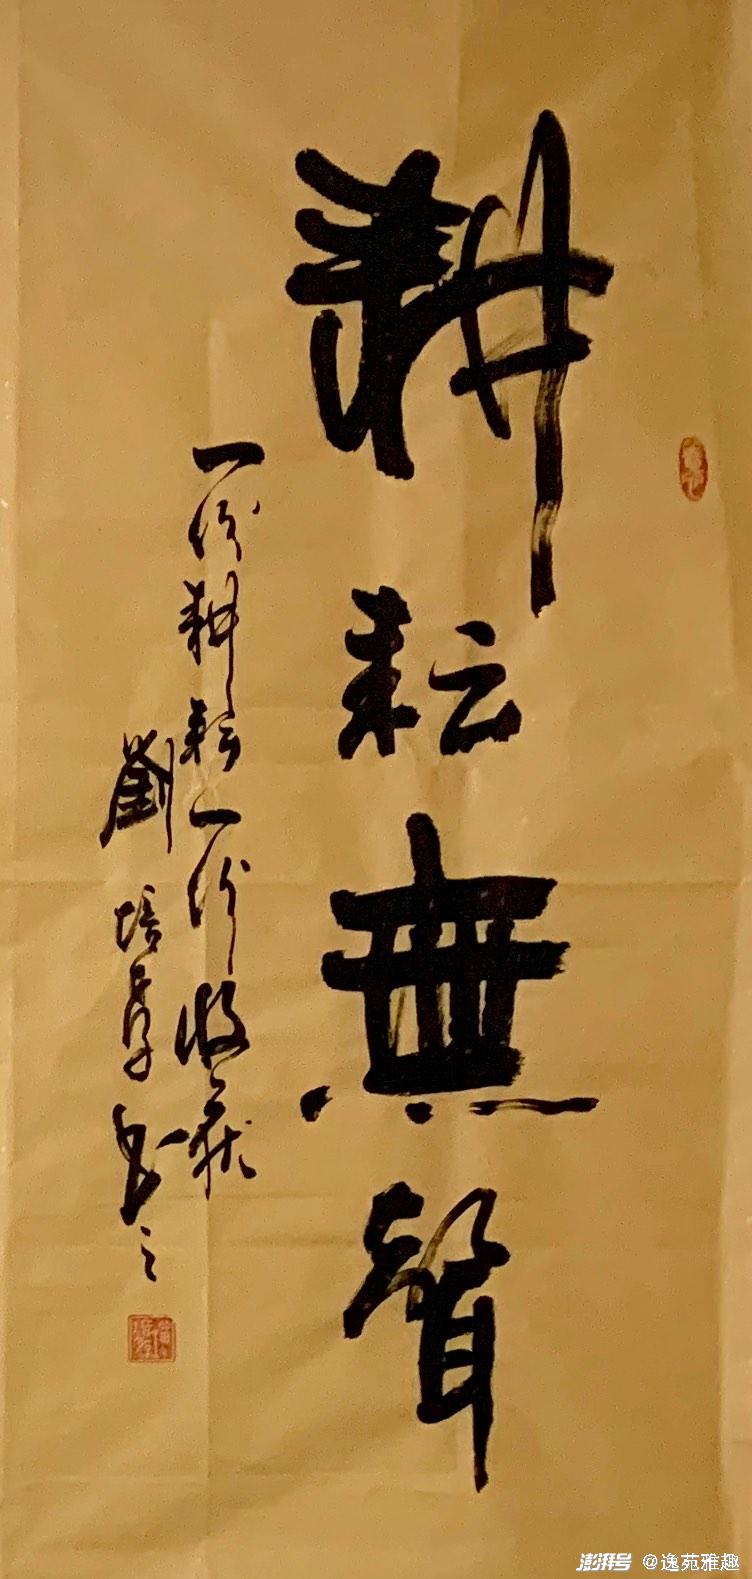 耕耘無聲
一份耕耘一份收获
劉培厚書之
澎湃号 @逸苑雅趣